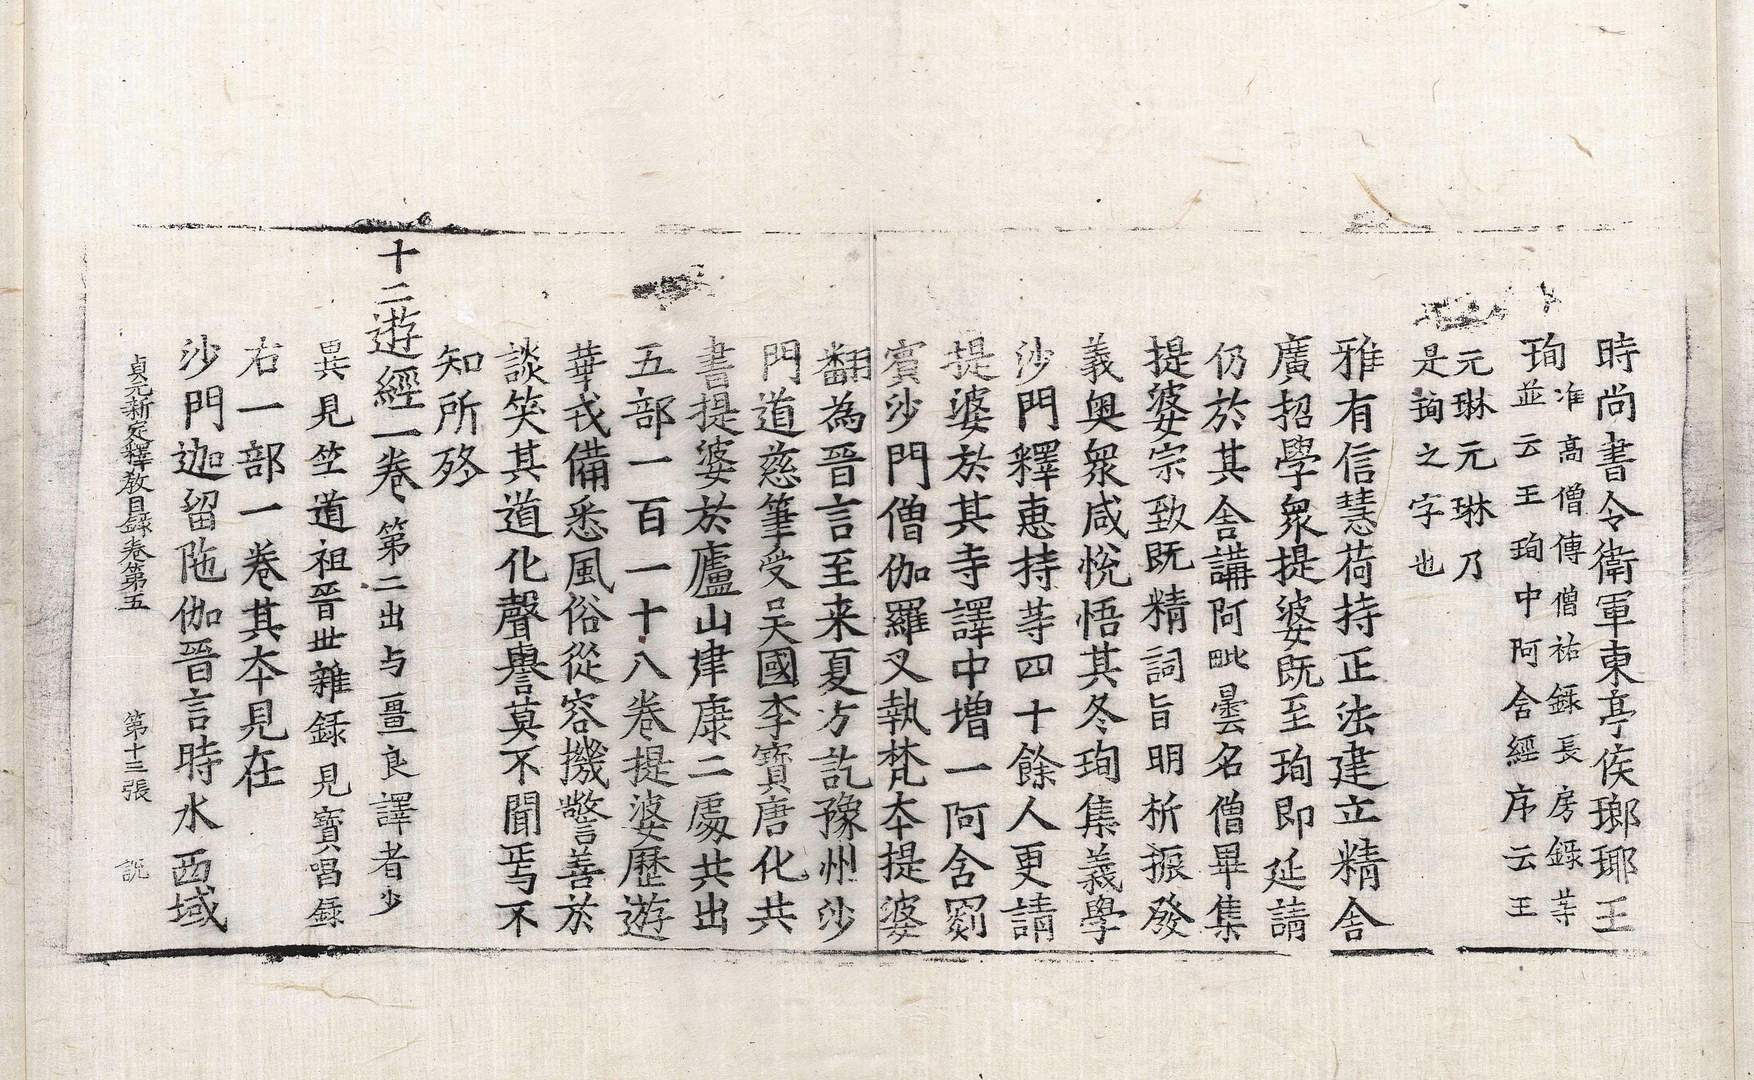 時尚書令衛軍東亭侯瑯瑘王
珣准高僧傳僧祐錄長房錄䓁
並云王珣中阿含經序云王
元琳元琳乃
是珣之字也
雅有信慧荷持正法建立精舍
廣招學衆提婆旣至珣即延請
仍於其舍講阿毗曇名僧畢集
提婆宗致旣精詞旨明析振發
義奧衆咸悅悟其冬珣集義學
沙門釋惠持䓁四十餘人更請
提婆於其寺譯中增一阿含罽
賓沙門僧伽羅叉執梵夲提婆
翻為晉言至来夏方訖豫州沙
門道慈筆受吴國李寶唐化共
書提婆於廬山建康二處共出
五部一百一十八卷提婆歷遊
華戎備悉風俗從容機警善於
談笑其道化聲譽莫不聞焉不
知所終
十二遊經一卷第二出与畺良譯者少
異見竺道祖晉世雜錄見寶唱錄
右一部一卷其夲見在
沙門迦留陁伽晉言時水西域
貞元新定釋教目錄卷第五　第十三張